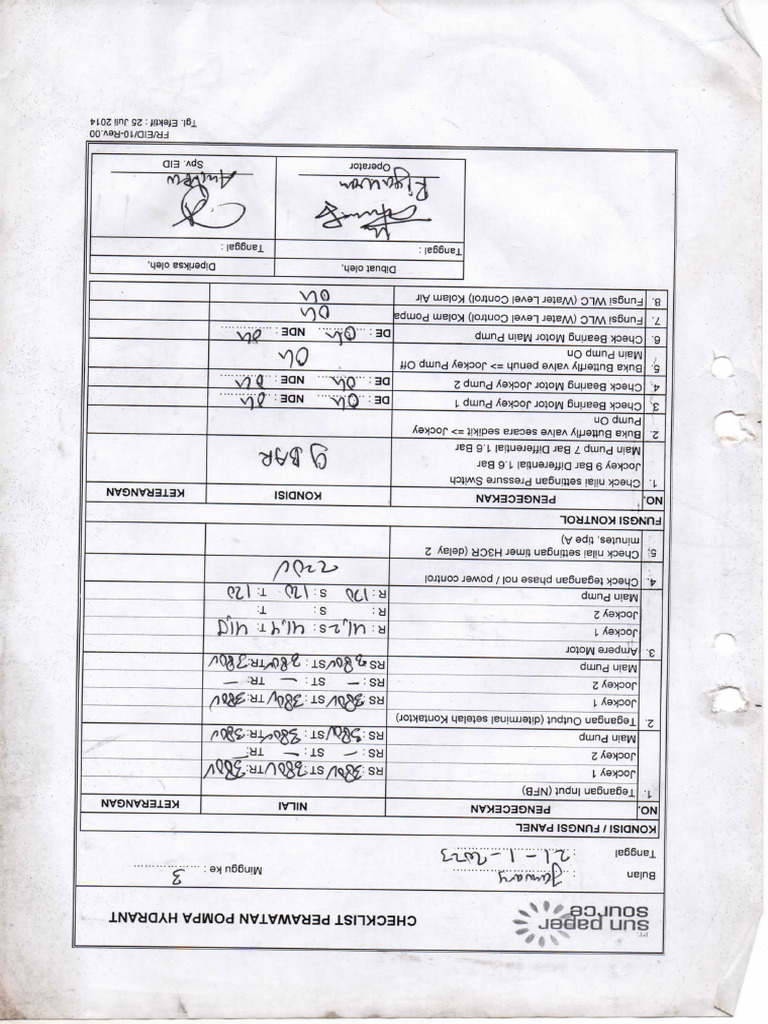 PT.
sun paper
source
CHECKLIST PERAWATAN POMPA HYDRANT
Bulan : January Minggu ke : 3
Tanggal : 21-1-2023
KONDISI / FUNGSI PANEL
NO. PENGECEKAN NILAI KETERANGAN
1. Tegangan Input (NFB)
Jockey 1 RS : 380V ST : 380V TR : 380V
Jockey 2 RS : – ST : – TR : –
Main Pump RS : 380V ST : 380V TR : 380V
2. Tegangan Output (diterminal setelah Kontaktor)
Jockey 1 RS : 380V ST : 380V TR : 380V
Jockey 2 RS : – ST : – TR : –
Main Pump RS : 380V ST : 380V TR : 380V
3. Ampere Motor
Jockey 1 R : 41,2 S : 41,4 T : 41,0
Jockey 2 R : S : T :
Main Pump R : 170 S : 120 T : 120
4. Check tegangan phase nol / power control 220V
5. Check nilai settingan timer H3CR (delay 2
minutes, tipe A)
FUNGSI KONTROL
NO. PENGECEKAN KONDISI KETERANGAN
1. Check nilai settingan Pressure Switch
Jockey 9 Bar Differential 1.6 Bar 9 BAR
Main Pump 7 Bar Differential 1.6 Bar
2. Buka Butterfly valve secara sedikit => Jockey
Pump On
3. Check Bearing Motor Jockey Pump 1 DE : Ok NDE : Ok
4. Check Bearing Motor Jockey Pump 2 DE : Ok NDE : Ok
5. Buka Butterfly valve penuh => Jockey Pump Off
Main Pump On Ok
6. Check Bearing Motor Main Pump DE : Ok NDE : Ok
7. Fungsi WLC (Water Level Control) Kolam Pompa Ok
8. Fungsi WLC (Water Level Control) Kolam Air Ok
Dibuat oleh, Diperiksa oleh,
Tanggal : Tanggal :
Operator Spv. EID
FR/EID/10-Rev.00
Tgl. Efektif : 25 Juli 2014